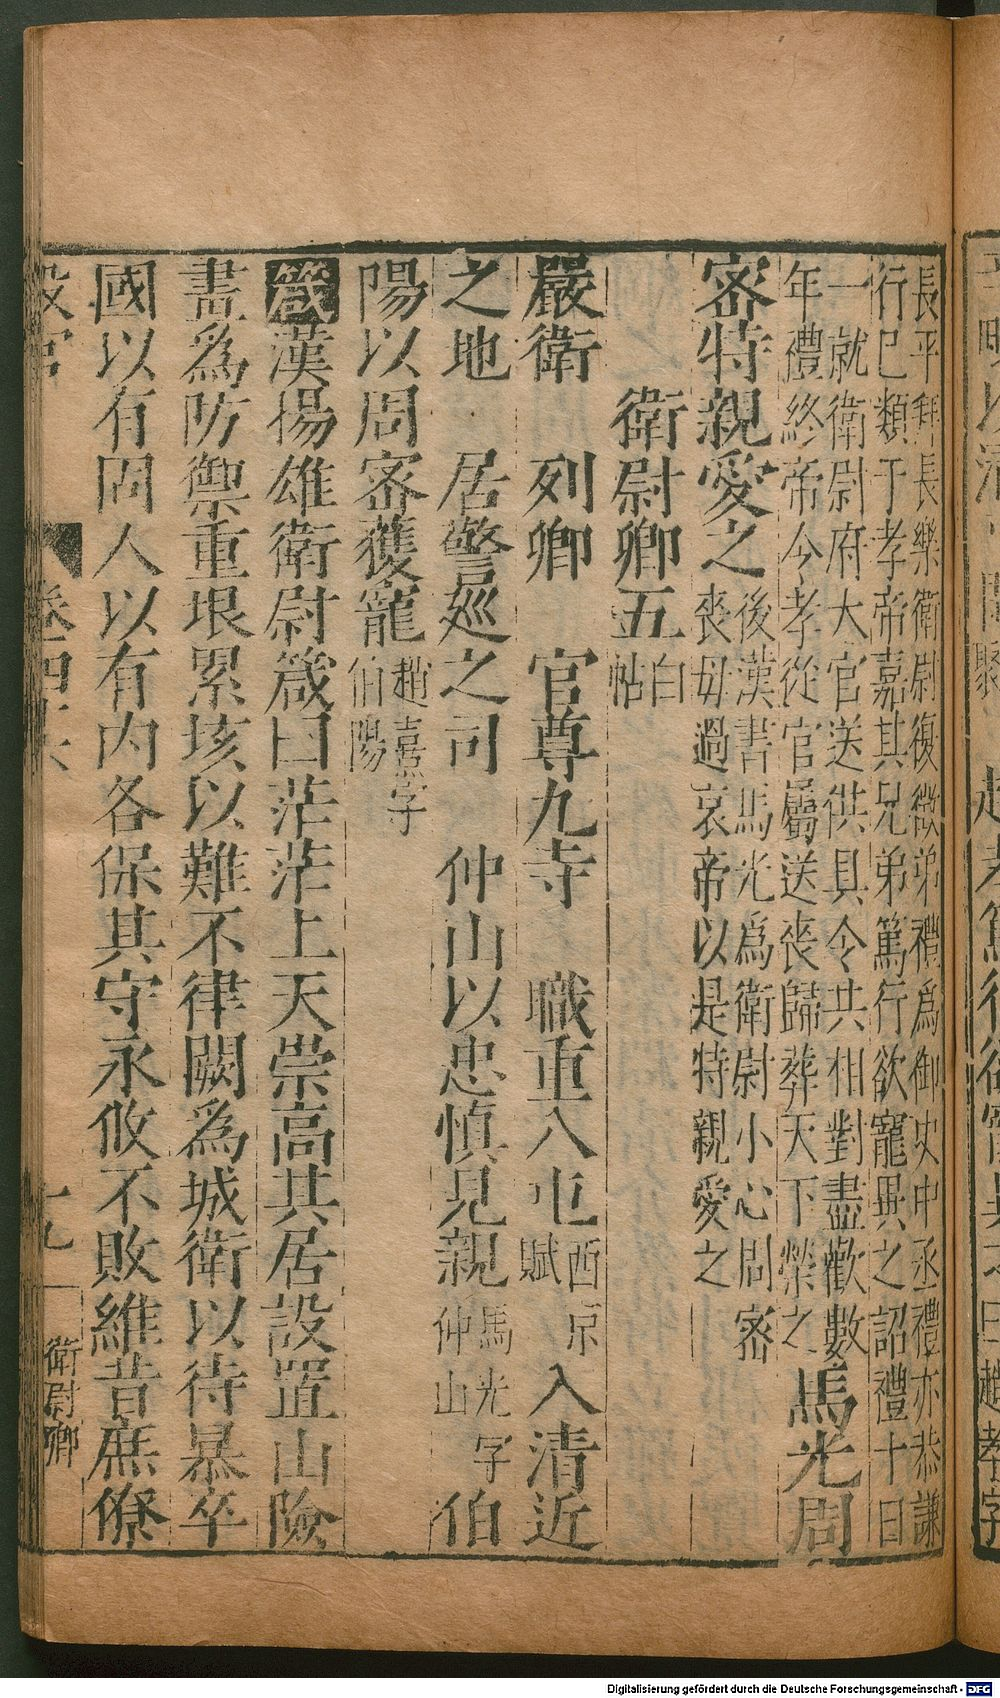 長平拜長樂衛尉復徵弟禮爲御史中丞禮亦恭謙
行已類于孝帝嘉其兄弟篤行欲寵異之詔禮十日
一就衛尉府大官送供具令共相對盡歡數
年禮終帝令孝從官屬送喪歸葬天下榮之
馬光周
密特親愛之
後漢書馬光爲衛尉小心周密
喪母過哀帝以是特親愛之
衛尉卿五
白
帖
嚴衛 列卿 官尊九寺 職重八屯
西京
賦
入清近
之地 居警廵之司 仲山以忠慎見親
馬光字
仲山
伯
陽以周密獲寵
趙熹字
伯陽
箴漢揚雄衛尉箴曰茫茫上天崇高其居設置山險
畫爲防禦重垠累垓以難不律闕爲城衛以待暴卒
國以有固人以有內各保其守永攸不敗維昔庶僚
設官
卷四
十九
衛尉卿
Digitalisierung gefördert durch die Deutsche Forschungsgemeinschaft - DFG